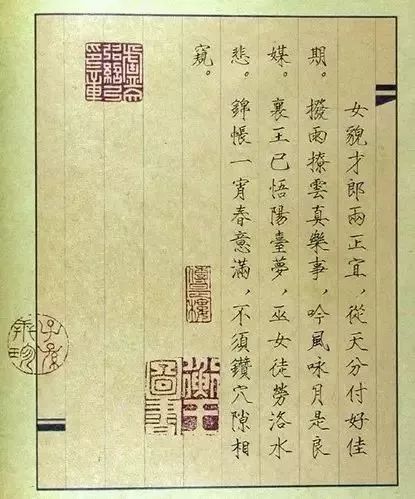 女貌才郎兩正宜，從天分付好佳
期。撥雨撩雲真樂事，吟風咏月是良
媒。襄王已悟陽臺夢，巫女徒勞洛水
悲。錦帳一宵春意滿，不須鑽穴隙相
窺。
衡王圖書